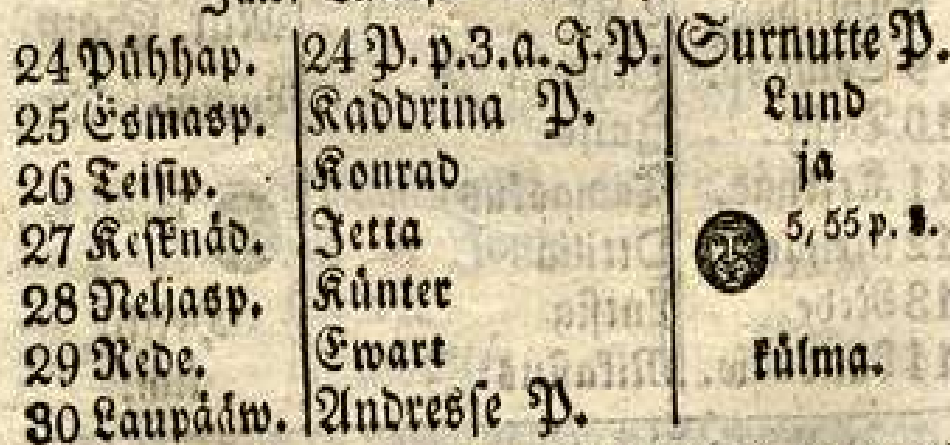 24 Pühhap. 24 P. p. 3. a. J. P. Surnutte P.
25 Esmasp. Kaddrina P. Lund
26 Teisip. Konrad ja
27 Kesknäd. Jetta 5, 55 p. l.
28 Neljasp. Künter
29 Rede. Ewart külma.
30 Laupääw. Andresse P.